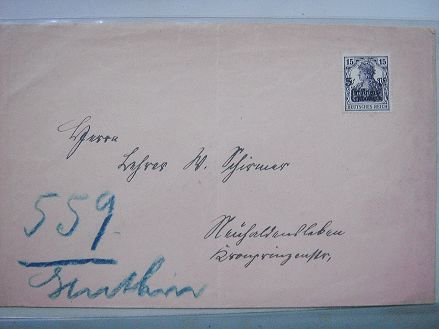 15 15
DEUTSCHES REICH
Herrn
Lehrer W. Schirmer
559
Neuhaldensleben
Kronprinzenstr.
Genthin